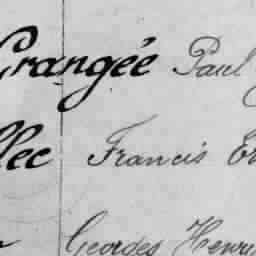 Crangée Paul
llec Francis
Georges Henri